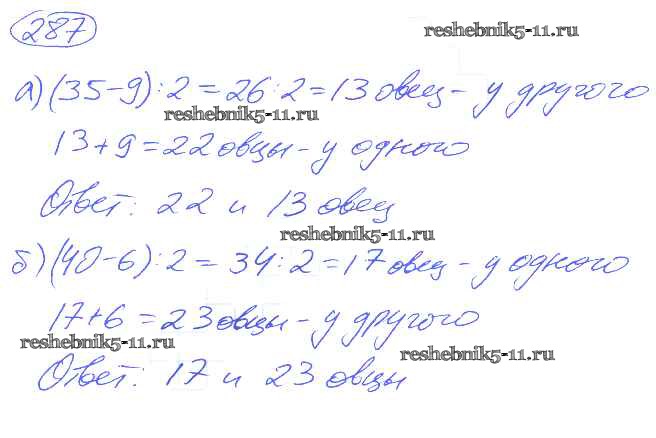 287
reshebnik5-11.ru
а) (35-9):2=26:2=13 овец - у другого
reshebnik5-11.ru
13+9=22 овцы - у одного
Ответ: 22 и 13 овец
reshebnik5-11.ru
б) (40-6):2=34:2=17 овец - у одного
17+6=23 овцы - у другого
reshebnik5-11.ru
reshebnik5-11.ru
Ответ: 17 и 23 овцы